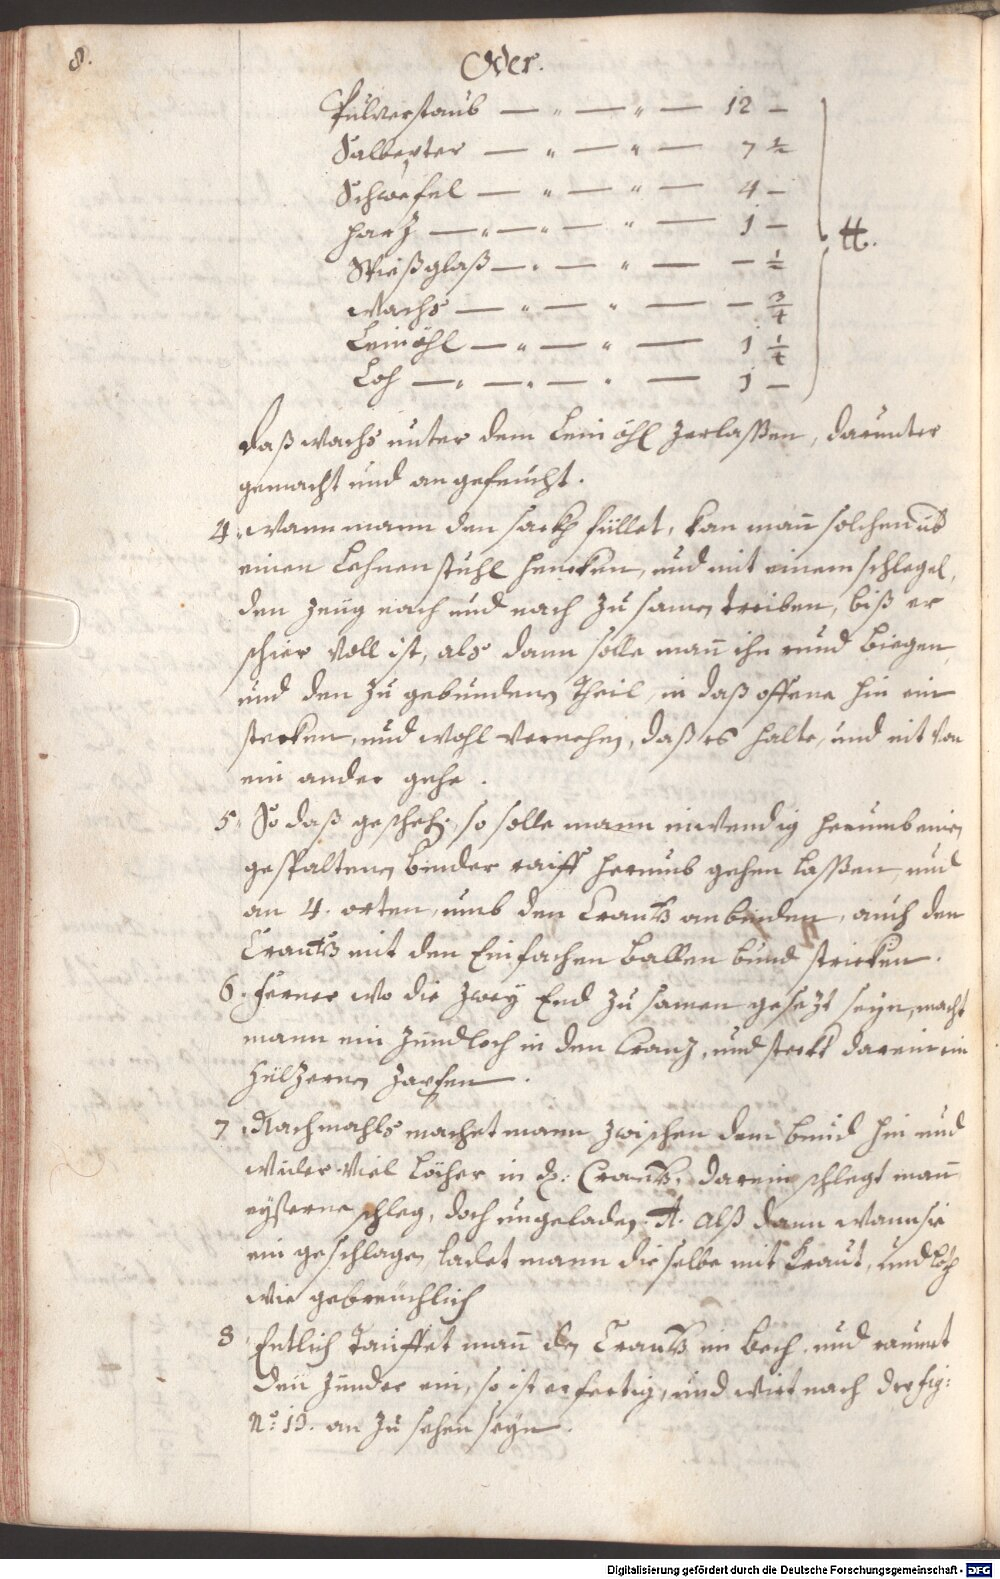 8.
Oder.
Pulverstaub — " — " — 12 —
Salbeter — " — " — 7 ½
Schwefel — " — " — 4 —
Harz — " — " — " — 1 —
Spießglaß — " — " — — ½
Wachs — " — " — — ¾
Leinöhl — " — " — 1 ¼
Loh — " — " — " — 1 —
℔.
daß wachs unter dem Leinöhl zerlaßen, darunter
gemacht und angefeucht.
4. Wann mann den sackh füllet, kan man̄ solchen üb
einen Lehnen stuhl hencken, und mit einem schlegel,
den zeüg nach und nach zu samen treiben, biß er
schier voll ist, als dann solle man̄ ihn rund biegen,
und den zu gebunden Theil, in daß offene hin ein
stecken, und wohl vernehen, daß es halte, und nit von
ein ander gehe.
5. So daß gescheh, so solle mann inwendig herumb einen
gespaltenen binder raiff herumb gehen laßen, und
an 4. orten, umb den Crantz anbinden, auch den
Crantz mit den Einfachen ballen bund stricken.
6. Ferner wo die zwey End zu samen gesezt seyn, macht
mann ein Zündloch in den Cranz, und steckt darein ein
hülzernen zapfen.
7. Nachmahls machet mann zwischen dem bund hin und
wider viel löcher in d. Crantz, darein schlegt man̄
eyßerne schleg, doch ungeladen. A. Alß dann wann sie
ein geschlagen, ladet mann dieselbe mit Kraut, und Loth
wie gebreüchlich
8. Entlich Tauffet man̄ den Crantz in bech, und raumt
den zünder ein, so ist er fertig, und wirt nach der fig:
No: 13. an zu sehen seyn.
Digitalisierung gefördert durch die Deutsche Forschungsgemeinschaft - DFG